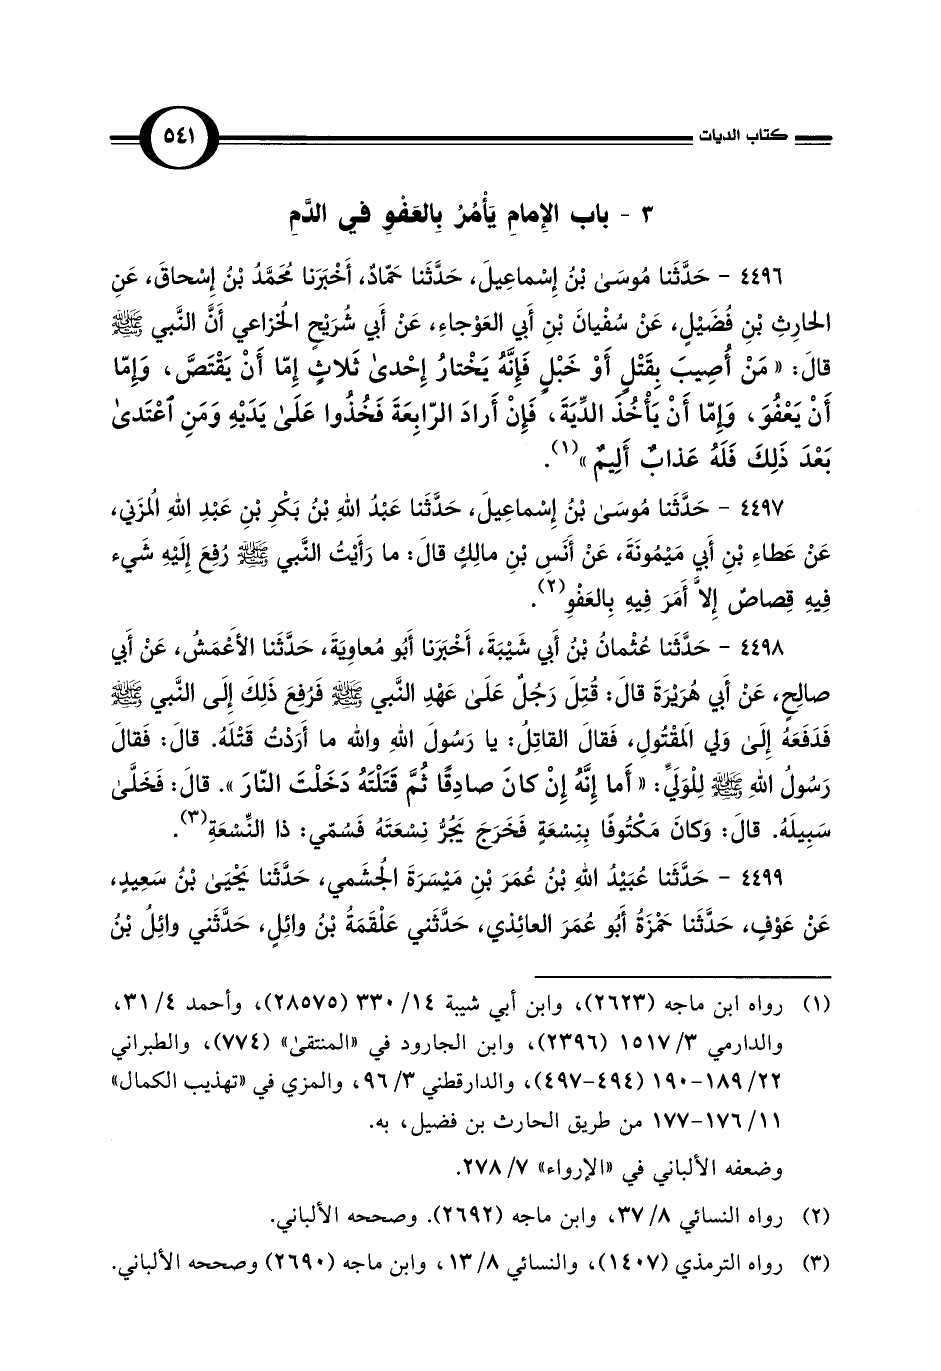 كتاب الديات ٥٤١
٣ - باب الإِمامِ يَأْمُرُ بِالعَفْوِ في الدَّمِ
٤٤٩٦ - حَدَّثَنا مُوسَىٰ بْنُ إِسْماعِيلَ، حَدَّثَنا حَمّادٌ، أَخْبَرَنا مُحَمَّدُ بْنُ إِسْحاقَ، عَنِ
الحارِثِ بْنِ فُضَيْلٍ، عَنْ سُفْيانَ بْنِ أَبي العَوْجاءِ، عَنْ أَبي شُرَيْحٍ الخُزاعي أَنَّ النَّبي ﷺ
قالَ: « مَنْ أُصِيبَ بِقَتْلٍ أَوْ خَبْلٍ فَإِنَّهُ يَخْتارُ إِحْدىٰ ثَلاثٍ إِمّا أَنْ يَقْتَصَّ، وَإِمّا
أَنْ يَعْفُوَ، وَإِمّا أَنْ يَأْخُذَ الدِّيَةَ، فَإِنْ أَرادَ الرّابِعَةَ فَخُذُوا عَلَىٰ يَدَيْهِ وَمَنِ ٱعْتَدىٰ
بَعْدَ ذَلِكَ فَلَهُ عَذابٌ أَلِيمٌ »(١).
٤٤٩٧ - حَدَّثَنا مُوسَىٰ بْنُ إِسْماعِيلَ، حَدَّثَنا عَبْدُ اللهِ بْنُ بَكْرِ بْنِ عَبْدِ اللهِ المُزَني،
عَنْ عَطاءِ بْنِ أَبي مَيْمُونَةَ، عَنْ أَنَسِ بْنِ مالِكٍ قالَ: ما رَأَيْتُ النَّبي ﷺ رُفِعَ إِلَيْهِ شَيء
فِيهِ قِصاصٌ إِلاَّ أَمَرَ فِيهِ بِالعَفْوِ(٢).
٤٤٩٨ - حَدَّثَنا عُثْمانُ بْنُ أَبي شَيْبَةَ، أَخْبَرَنا أَبُو مُعاوِيَةَ، حَدَّثَنا الأَعْمَشُ، عَنْ أَبي
صالِحٍ، عَنْ أَبي هُرَيْرَةَ قالَ: قُتِلَ رَجُلٌ عَلَىٰ عَهْدِ النَّبي ﷺ فَرُفِعَ ذَلِكَ إِلَى النَّبي ﷺ
فَدَفَعَهُ إِلَىٰ وَلي المَقْتُولِ، فَقالَ القاتِلُ: يا رَسُولَ اللهِ والله ما أَرَدْتُ قَتْلَهُ. قالَ: فَقالَ
رَسُولُ اللهِ ﷺ لِلْوَلَيِّ: « أَما إِنَّهُ إِنْ كانَ صادِقًا ثُمَّ قَتَلْتَهُ دَخَلْتَ النّارَ ». قالَ: فَخَلَّىٰ
سَبِيلَهُ. قالَ: وَكانَ مَكْتُوفًا بِنِسْعَةٍ فَخَرَجَ يَجُرُّ نِسْعَتَهُ فَسُمّي: ذا النِّسْعَةِ(٣).
٤٤٩٩ - حَدَّثَنا عُبَيْدُ اللهِ بْنُ عُمَرَ بْنِ مَيْسَرَةَ الجُشَمي، حَدَّثَنا يَحْيَىٰ بْنُ سَعِيدٍ،
عَنْ عَوْفٍ، حَدَّثَنا حَمْزَةُ أَبُو عُمَرَ العائِذي، حَدَّثَني عَلْقَمَةُ بْنُ وائِلٍ، حَدَّثَني وائِلُ بْنُ
(١) رواه ابن ماجه (٢٦٢٣)، وابن أبي شيبة ١٤/ ٣٣٠ (٢٨٥٧٥)، وأحمد ٤/ ٣١،
والدارمي ٣/ ١٥١٧ (٢٣٩٦)، وابن الجارود في «المنتقىٰ» (٧٧٤)، والطبراني
٢٢/ ١٨٩-١٩٠ (٤٩٤-٤٩٧)، والدارقطني ٣/ ٩٦، والمزي في «تهذيب الكمال»
١١/ ١٧٦-١٧٧ من طريق الحارث بن فضيل، به.
وضعفه الألباني في «الإرواء» ٧/ ٢٧٨.
(٢) رواه النسائي ٨/ ٣٧، وابن ماجه (٢٦٩٢). وصححه الألباني.
(٣) رواه الترمذي (١٤٠٧)، والنسائي ٨/ ١٣، وابن ماجه (٢٦٩٠) وصححه الألباني.